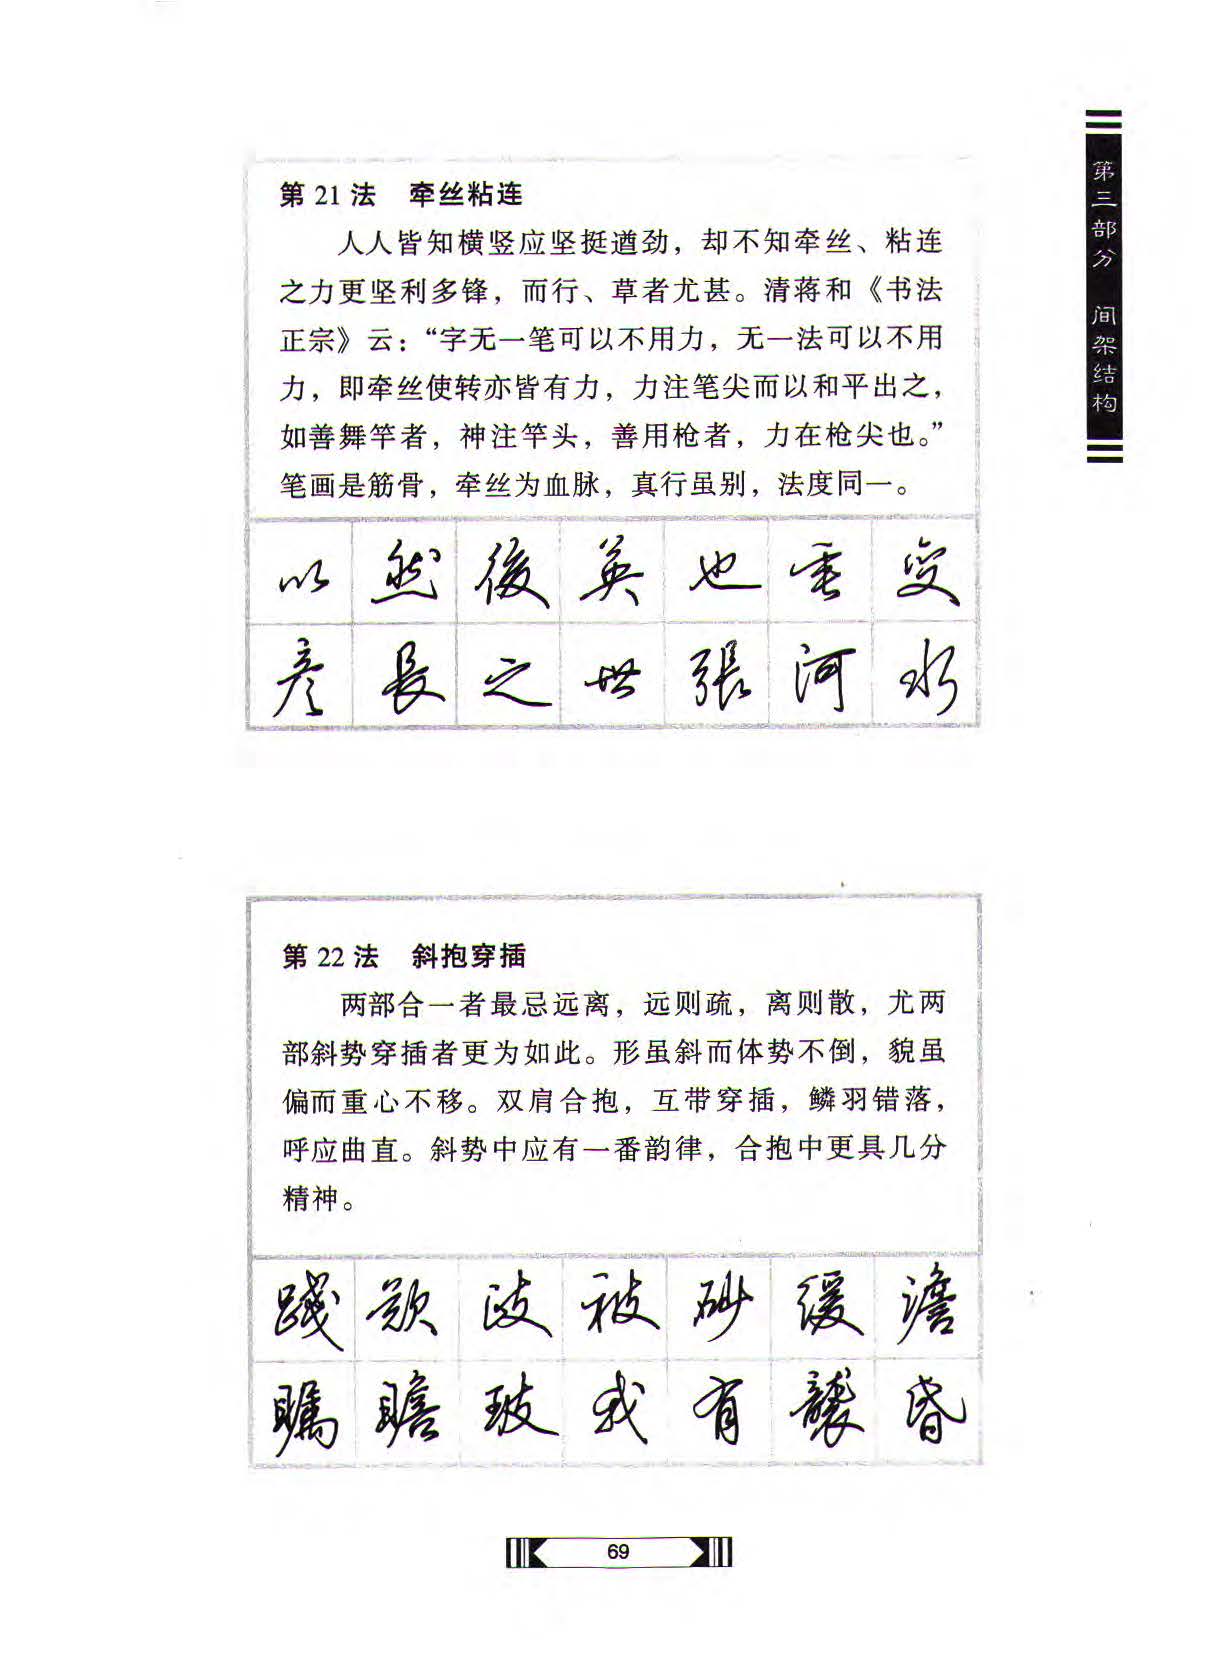 第三部分 间架结构
第 21 法 牵丝粘连
人人皆知横竖应坚挺遒劲，却不知牵丝、粘连
之力更坚利多锋，而行、草者尤甚。清蒋和《书法
正宗》云：“字无一笔可以不用力，无一法可以不用
力，即牵丝使转亦皆有力，力注笔尖而以和平出之，
如善舞竿者，神注竿头，善用枪者，力在枪尖也。”
笔画是筋骨，牵丝为血脉，真行虽别，法度同一。
以 然 後 英 也 垂 变
彦 長 之 世 張 河 水
第 22 法 斜抱穿插
两部合一者最忌远离，远则疏，离则散，尤两
部斜势穿插者更为如此。形虽斜而体势不倒，貌虽
偏而重心不移。双肩合抱，互带穿插，鳞羽错落，
呼应曲直。斜势中应有一番韵律，合抱中更具几分
精神。
踐 歌 歧 被 砂 缓 澹
瞩 瞻 玻 我 有 襲 昏
69